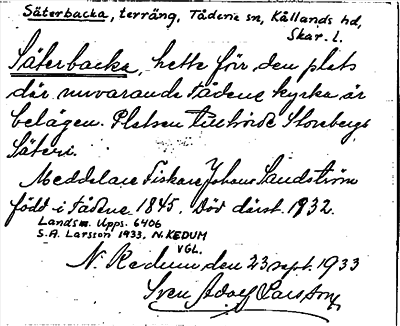 Säterbacka, terräng, Tådene sn, Kållands hd,
Skar. l.
Säterbacka, hette förr den plats
där nuvarande Tådene kyrka är
belägen. Platsen tillhörde Storebergs
Säteri.
Meddelare Fiskare Johans Sandström
född i Tådene 1845. Död därst. 1932.
Landsm. Upps. 6406
S.A. Larsson 1933. N. KEDUM
VGL.
N. Kedum den 23 sept. 1933
Sven Adolf Larsson